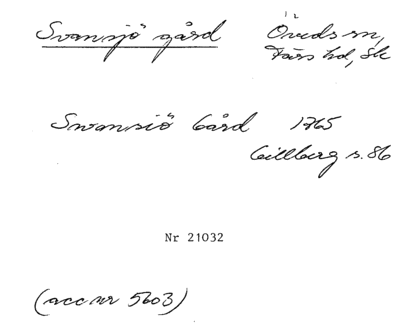 Svansjö gård Öveds sn,
Färs hd, Sk
Swansiö Gård 1765
Gillberg s. 86
Nr 21032
(acc nr 5603)